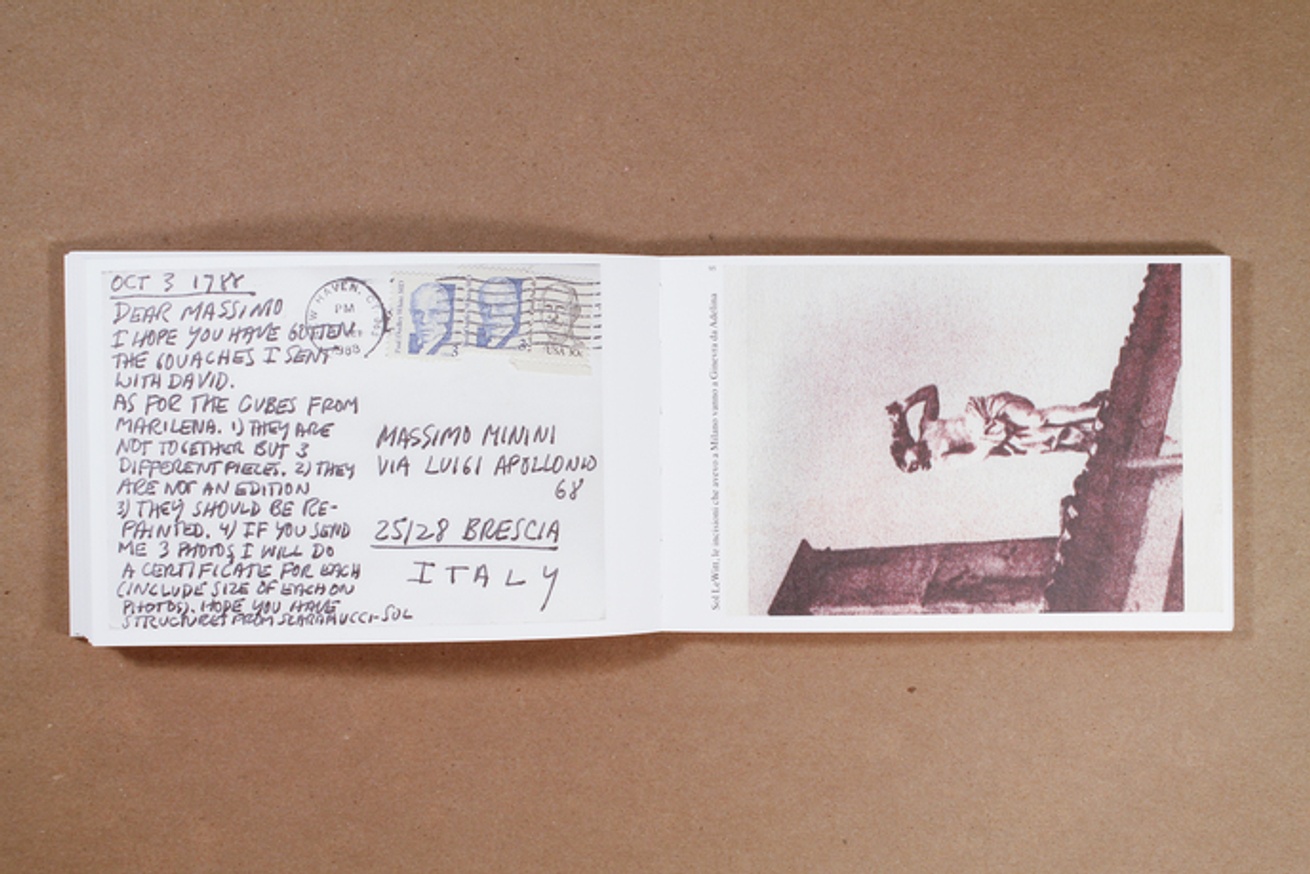 OCT 3 1988
DEAR MASSIMO
I HOPE YOU HAVE GOTTEN
THE GOUACHES I SENT
WITH DAVID.
AS FOR THE CUBES FROM
MARILENA. 1) THEY ARE
NOT TOGETHER BUT 3
DIFFERENT PIECES. 2) THEY
ARE NOT AN EDITION
3) THEY SHOULD BE RE-
PAINTED. 4) IF YOU SEND
ME 3 PHOTOS I WILL DO
A CERTIFICATE FOR EACH
(INCLUDE SIZE OF EACH ON
PHOTOS). HOPE YOU HAVE
STRUCTURES FROM SCARAMUCCI-SOL
HAVEN, CT
PM
1988
Paul Dudley White MD
3
3
USA 10c
MASSIMO MININI
VIA LUIGI APOLLONIO
68
25128 BRESCIA
ITALY
Sol LeWitt, le incisioni che avevo a Milano vanno a Ginevra da Adelina